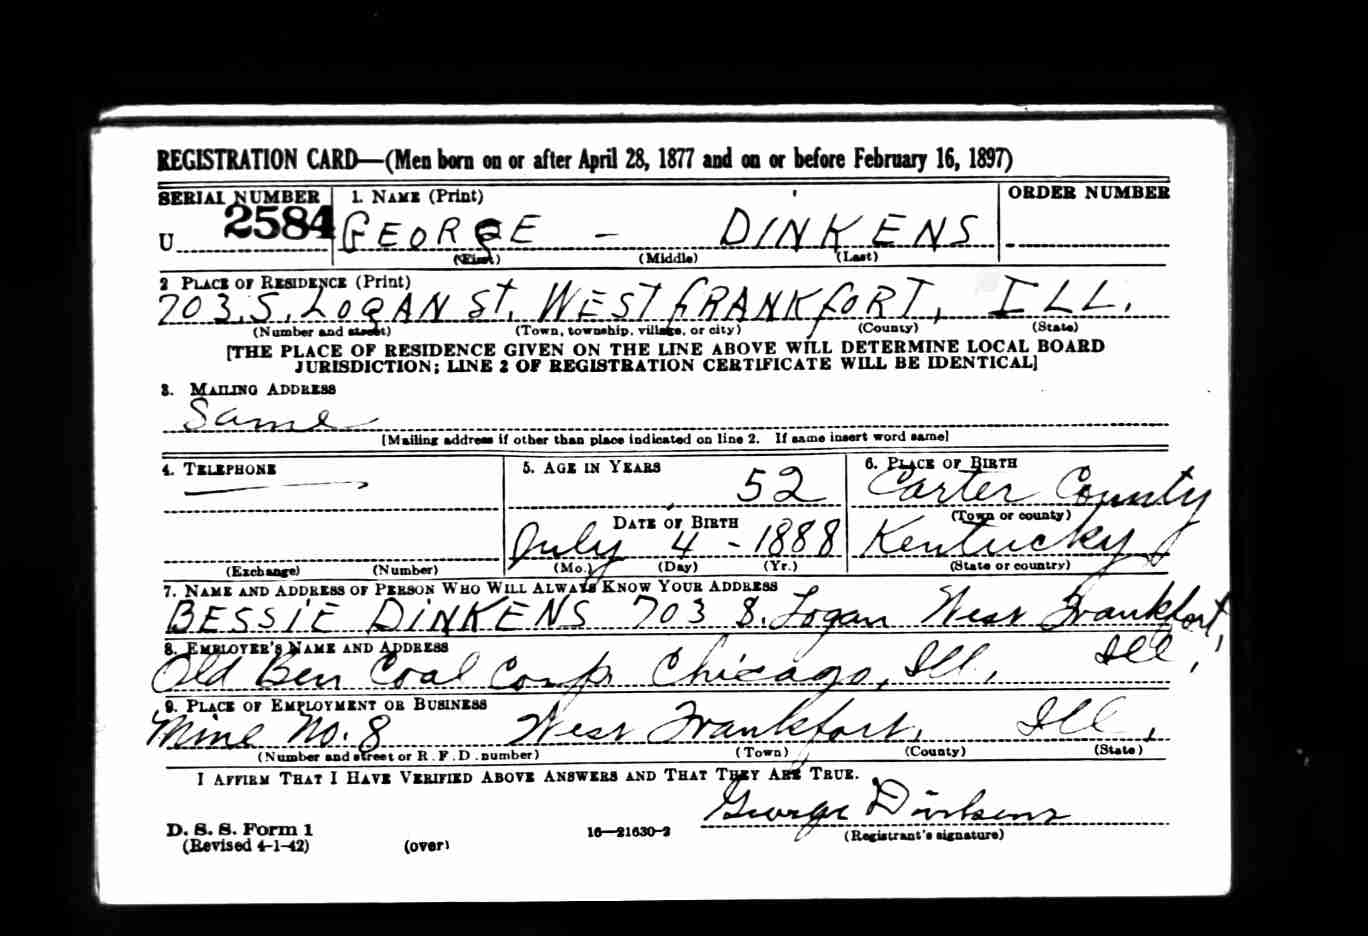 REGISTRATION CARD—(Men born on or after April 28, 1877 and on or before February 16, 1897)
SERIAL NUMBER
1. NAME (Print)
ORDER NUMBER
U 2584
GEORGE - DINKENS
(First) (Middle) (Last)
2 PLACE OF RESIDENCE (Print)
703. S. LOGAN ST. WEST FRANKFORT, ILL.
(Number and street) (Town, township, village, or city) (County) (State)
[THE PLACE OF RESIDENCE GIVEN ON THE LINE ABOVE WILL DETERMINE LOCAL BOARD
JURISDICTION; LINE 2 OF REGISTRATION CERTIFICATE WILL BE IDENTICAL]
3. MAILING ADDRESS
Same
[Mailing address if other than place indicated on line 2. If same insert word same]
4. TELEPHONE
5. AGE IN YEARS
6. PLACE OF BIRTH
52
Carter County
DATE OF BIRTH
(Town or county)
July 4 - 1888
Kentucky
(Exchange) (Number)
(Mo.) (Day) (Yr.)
(State or country)
7. NAME AND ADDRESS OF PERSON WHO WILL ALWAYS KNOW YOUR ADDRESS
BESSIE DINKENS 703 S. Logan West Frankfort,
Ill,
8. EMPLOYER'S NAME AND ADDRESS
Old Ben Coal Corp. Chicago, Ill.
9. PLACE OF EMPLOYMENT OR BUSINESS
Mine No. 8 West Frankfort, Ill.
(Number and street or R. F. D. number) (Town) (County) (State)
I AFFIRM THAT I HAVE VERIFIED ABOVE ANSWERS AND THAT THEY ARE TRUE.
George Dinkens
D. S. S. Form 1
(Revised 4-1-42)
(over)
16—21630-2
(Registrant's signature)